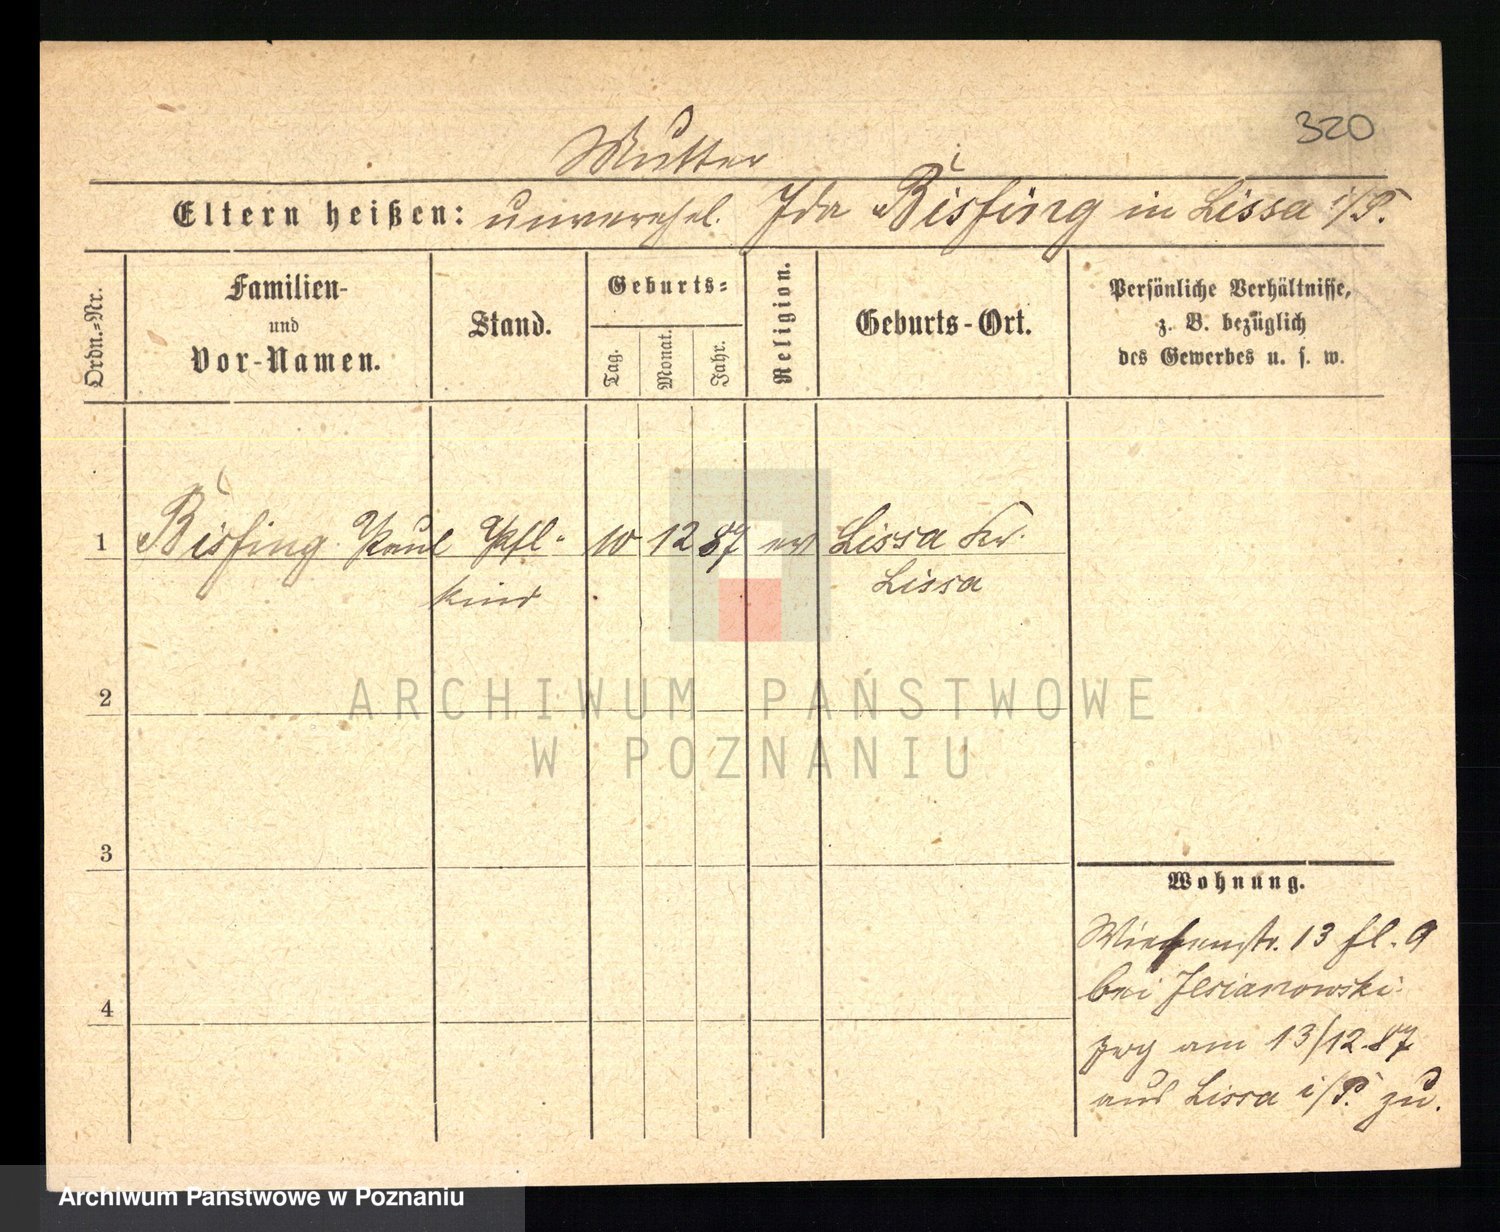 320
Mutter
Eltern heißen: unverehel. Ida Bisfing in Lissa i/P.
Ordn.=Nr.
Familien-
und
Vor-Namen.
Stand.
Geburts=
Tag.
Monat.
Jahr.
Religion.
Geburts-Ort.
Persönliche Verhältnisse,
z. B. bezüglich
des Gewerbes u. s. w.
1 Bisfing Paul Pfl- 10 12 87 ev Lissa Kr.
kind Lissa
ARCHIWUM PAŃSTWOWE
W POZNANIU
2
3
4
Wohnung.
13 9
bei
am 13/12 87
aus Lissa i/P. zu.
Archiwum Państwowe w Poznaniu